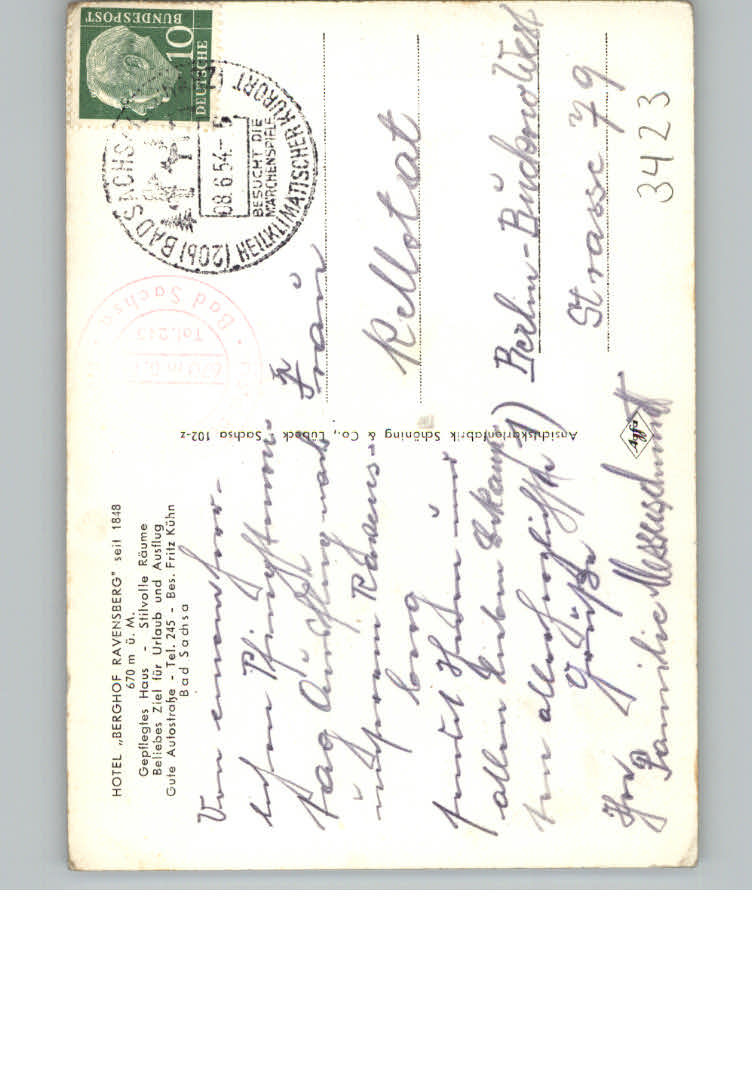 HOTEL „BERGHOF RAVENSBERG" seit 1848
670 m ü. M.
Gepflegtes Haus - Stilvolle Räume
Beliebes Ziel für Urlaub und Ausflug
Gute Autostraße - Tel. 245 - Bes. Fritz Kühn
Bad Sachsa
Von einem herr-
lichen Pfingstmon-
tag Ausflug nach
unserem Ravens-
berg
sendet Ihnen und
allen lieben Bekann-
ten allerherzlichste
Grüße
Ihre
Familie Messerschmidt
Ansichtskartenfabrik Schöning & Co., Lübeck Sachsa 102-z
Agfa
DEUTSCHE
BUNDESPOST
10
(20b) BAD SACHSA
HEILKLIMATISCHER KURORT
08.6.54
BESUCHT DIE
MÄRCHENSPIELE
Bad Sachsa
Tel. 245
670 m ü.
Frau
Kellotat
Berlin-Buckow West
Strasse 79
3423